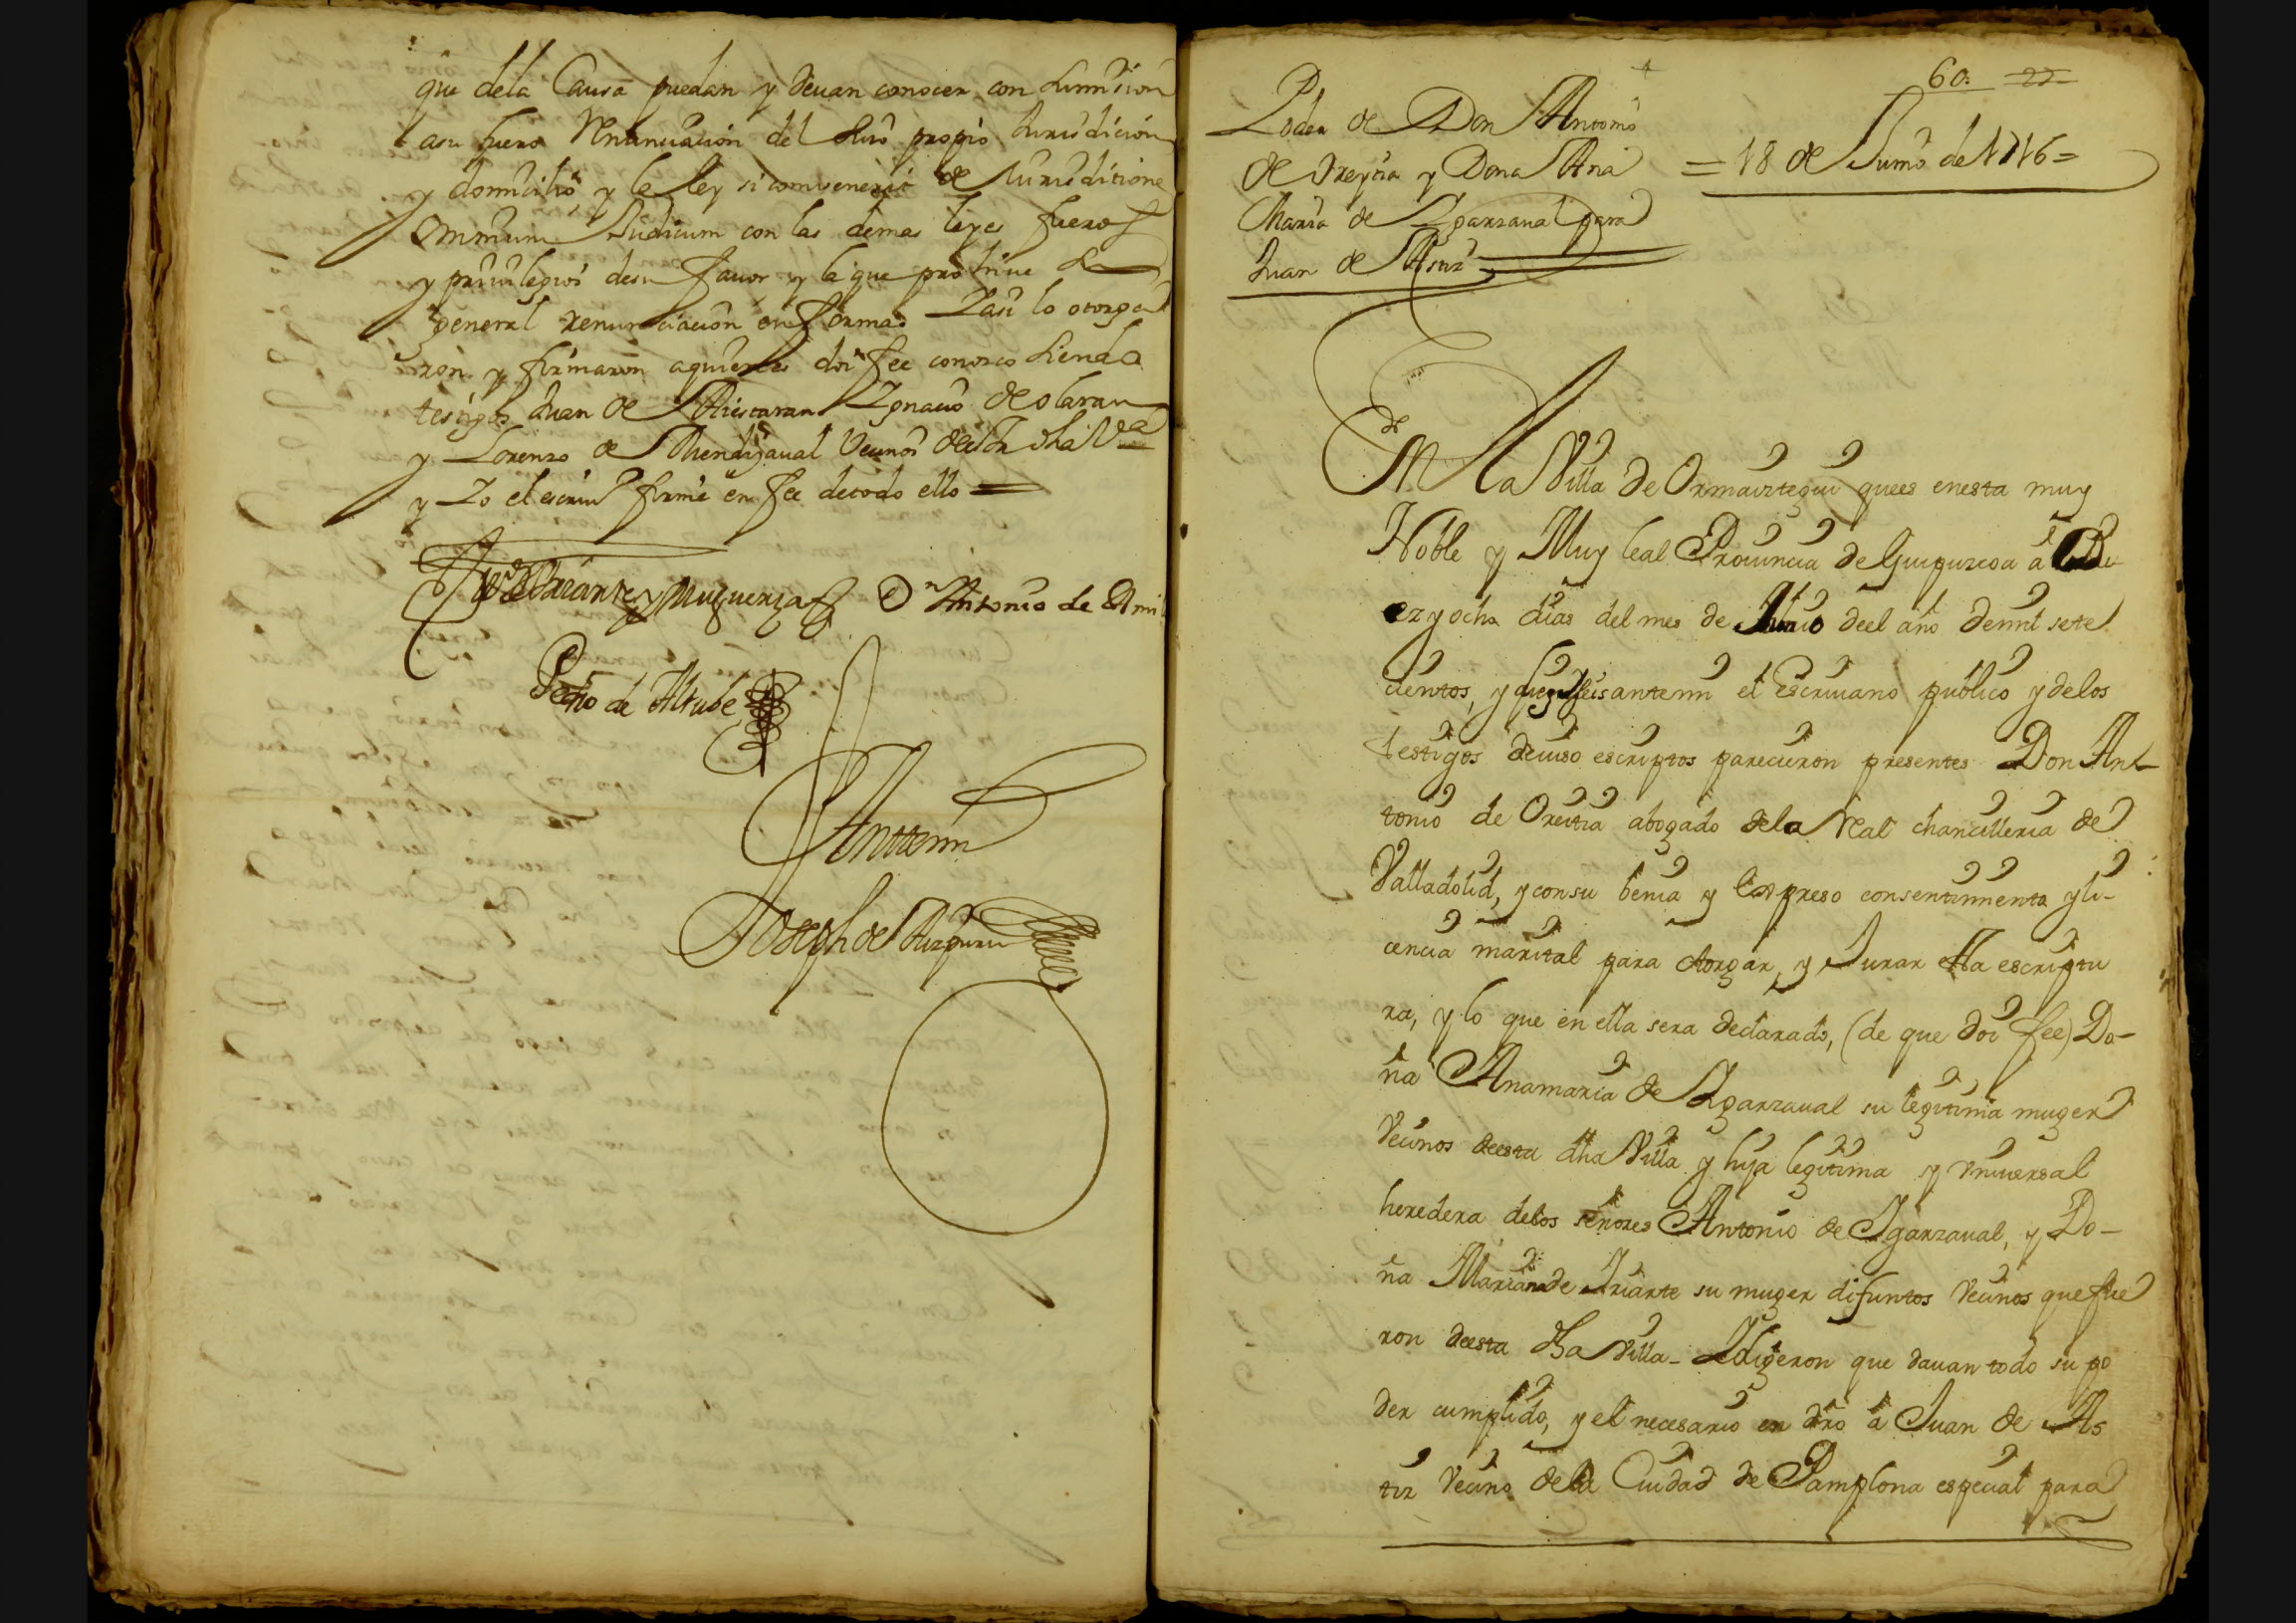 que dela Causa puedan y devan conocer con sumision
asu fuero Renunciacion del suio propio Jurisdicion
y domicilio y la ley si convenerit de Jurisditione
omnium Judicum con las demas leyes fueros
y privilegios desu favor y la que prohive la
general renunciacion en forma Yasi lo otorga
ron y firmaron aquienes doi fee conozco siendo
testigos Juan de Ariscaran Ygnacio de olaran
y Lorenzo de Mendizaval Vecinos desta dha Va
y Yo el escriuo firme en fee detodo ello =
Dn Antonio de
Pedro de Altube
Antemi
Joseph de Aizpuru
60. 22
Poder de Don Antonio
de Oreytia y Dona Ana
Maria de Ygarzaval para
Juan de Astiz
= 18 de Junio de 1716 =
En la Villa de Ormaiztegui quees enesta muy
Noble y Muy leal Provincia de Guipuzcoa a Di
ez y ocho dias del mes de Junio deel año demil sete
cientos, y diez y seis antemi el Escrivano publico y delos
testigos deiuso escriptos parecieron presentes Don An-
tonio de Oreitia abogado dela Real chancilleria de
Valladolid, y consu benia y expreso consentimiento y li-
cencia marital para otorgar, y Jurar esta escriptu
ra, y lo que en ella sera declarado, (de que doi fee) Do-
ña Anamaria de Ygarzaval su legitima muger
Vecinos deesta dha Villa y hija legitima y vniversal
heredera delos señores Antonio de Igarzaval, y Do-
ña Mariana de Iriarte su muger difuntos Vecinos que fue
ron deesta dha Villa- Ydigeron que davan todo su po
der cumplido, y el necesario en dro a Juan de As
tiz Vecino dela Ciudad de Pamplona especial para